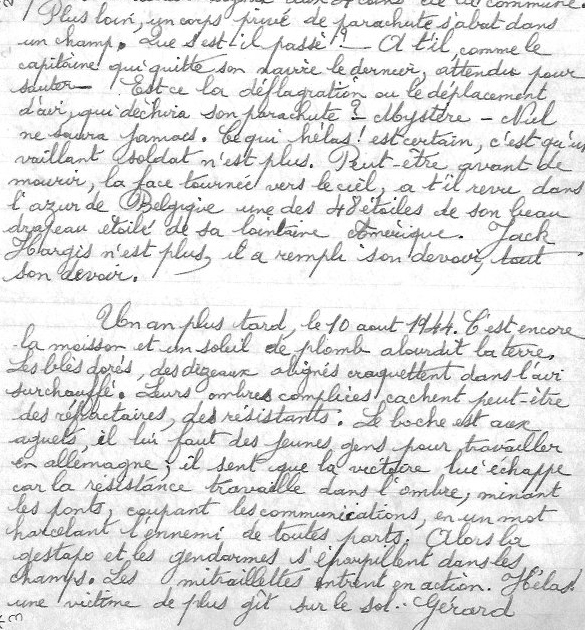 Plus loin, un corps privé de parachute s'abat dans
un champ. Que s'est-il passé? - A t'il, comme le
capitaine qui quitte son navire le dernier, attendu pour
sauter - Est ce la déflagration ou le déplacement
d'air, qui déchira son parachute? Mystère - Nul
ne saura jamais. Ce qui hélas! est certain, c'est qu'un
vaillant soldat n'est plus. Peut-être, avant de
mourir, la face tournée vers le ciel, a t'il revu dans
l'azur de Belgique une des 48 étoiles de son beau
drapeau étoilé de sa lointaine Amérique. Jack
Hargis n'est plus, il a rempli son devoir, tout
son devoir.
Un an plus tard, le 10 aout 1944. C'est encore
la moisson et un soleil de plomb alourdit la terre.
Les blés dorés, des dizeaux alignés craquettent dans l'air
surchauffé. Leurs ombres complices, cachent peut-être
des réfractaires, des résistants. Le boche est aux
aguets, il lui faut des jeunes gens pour travailler
en allemagne; il sent que la victoire lui échappe
car la résistance travaille dans l'ombre, minant
les ponts, coupant les communications, en un mot
harcelant l'ennemi de toutes parts. Alors la
gestapo et les gendarmes s'éparpillent dans les
champs. Les mitraillettes entrent en action. Hélas!
une victime de plus gît sur le sol.. Gérard